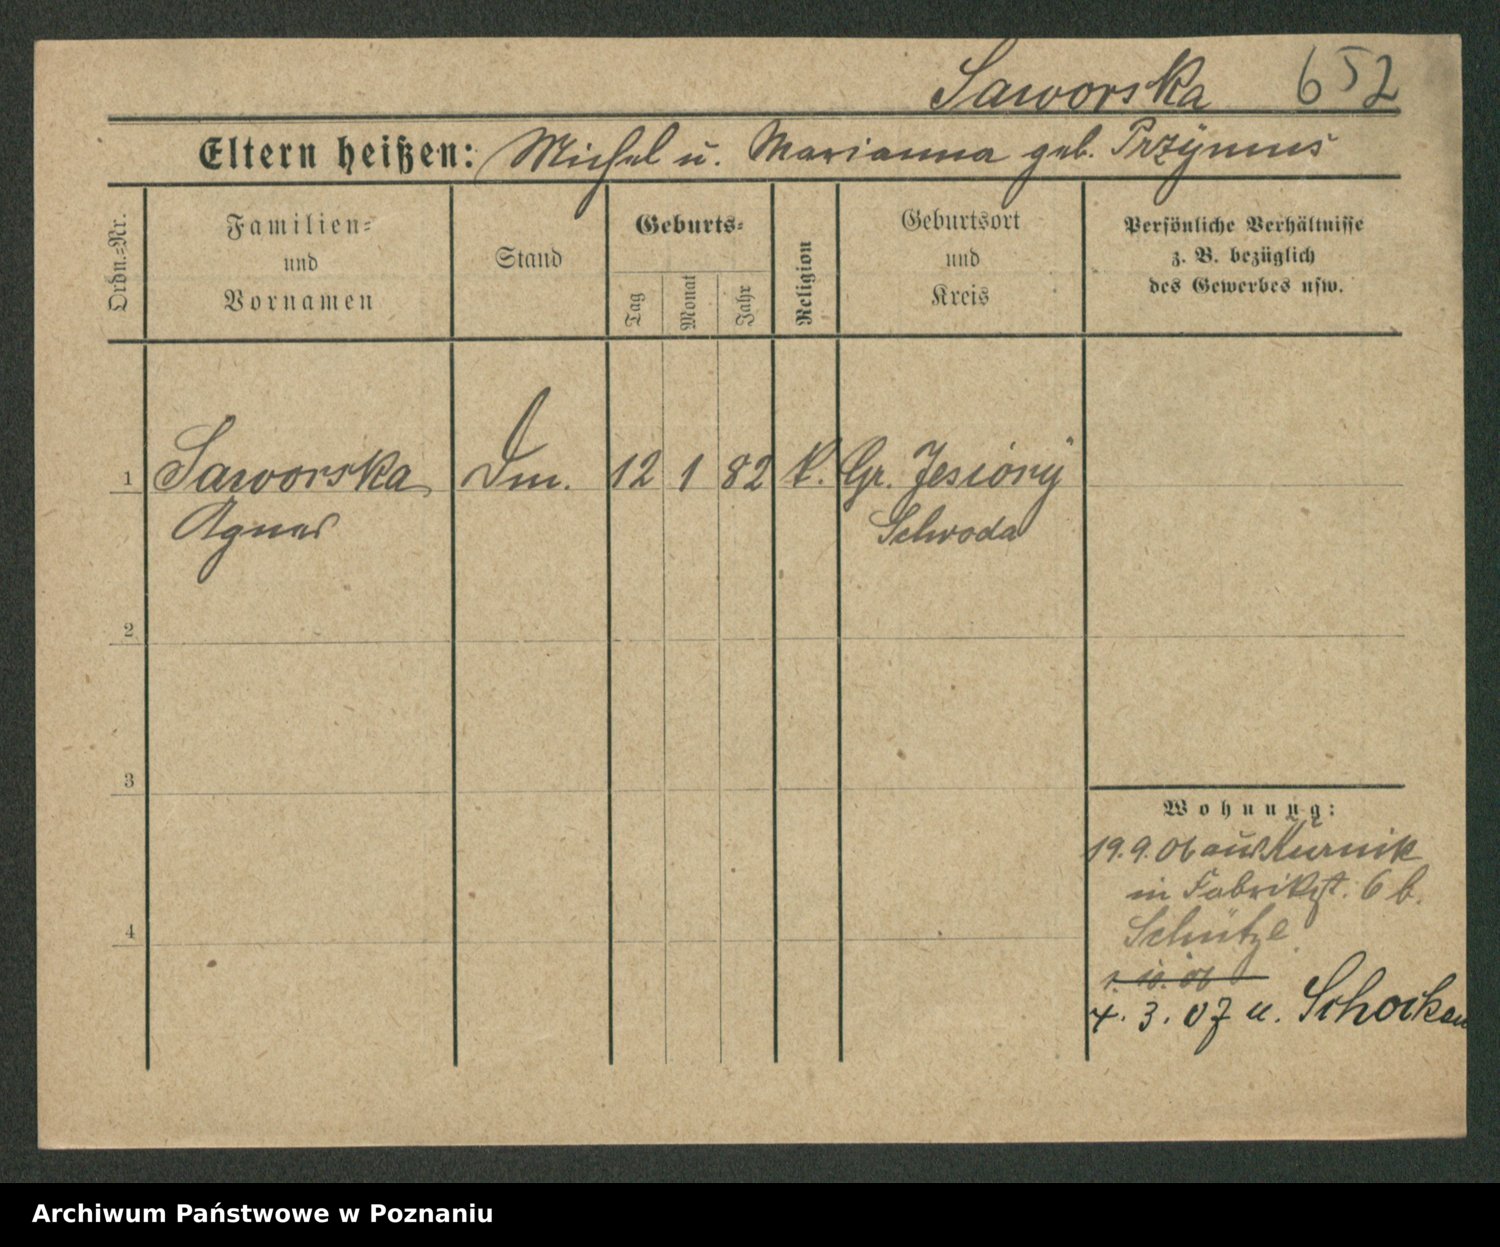 Saworska 652
Eltern heißen: Michel u. Marianna geb. Przÿmus
Ordn.=Nr.
Familien=
und
Vornamen
Stand
Geburts=
Tag
Monat
Jahr
Religion
Geburtsort
und
Kreis
Persönliche Verhältnisse
z. B. bezüglich
des Gewerbes usw.
1 Saworska Dm. 12 1 82 k. Gr. Jesiory
Agnes Schroda
2
3
4
Wohnung:
19.9.06 aus Kurnik
in Fabrikst. 6 b.
Schütze
1. 10. 06
4. 3. 07 u. Schocken
Archiwum Państwowe w Poznaniu